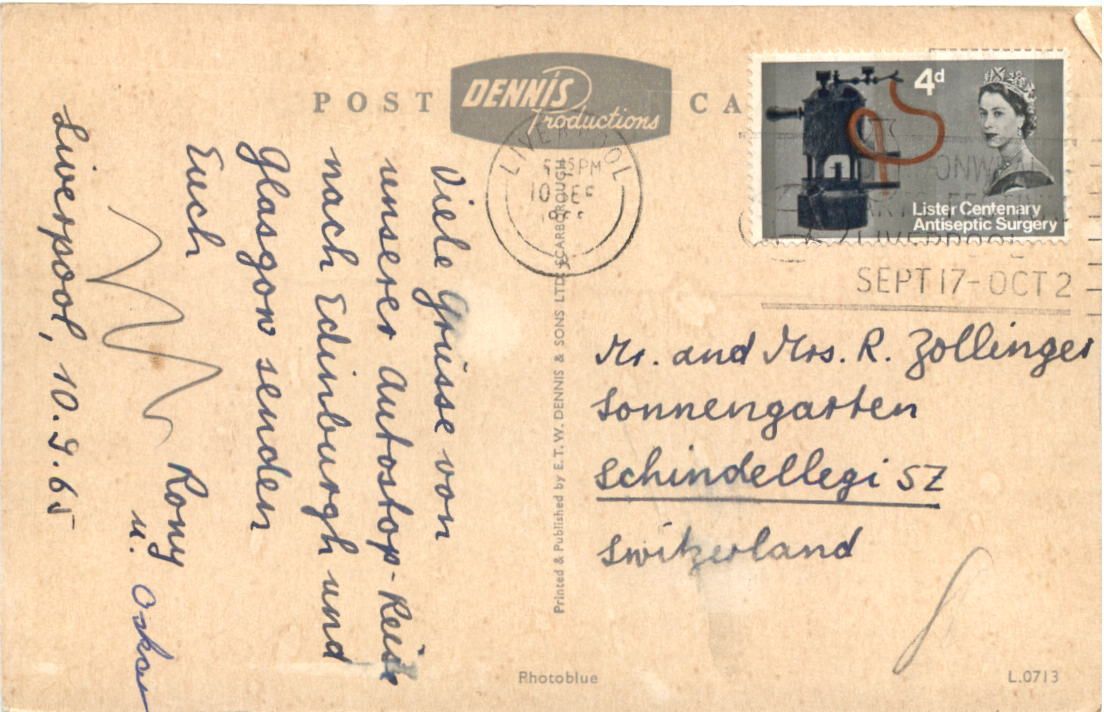 POST CA
DENNIS
Productions
LIVERPOOL
5 15 PM
10 SE
4d
Lister Centenary
Antiseptic Surgery
LIVERPOOL
SEPT 17 - OCT 2
Liverpool, 10.9.65
Viele Grüsse von
unserer Autostop-Reise
nach Edinburgh und
Glasgow senden
Euch
Rony
u. Oskar
Printed & Published by E. T. W. DENNIS & SONS LTD. SCARBOROUGH
Mr. and Mrs. R. Zollinger
Sonnengarten
Schindellegi SZ
Switzerland
Photoblue
L.0713